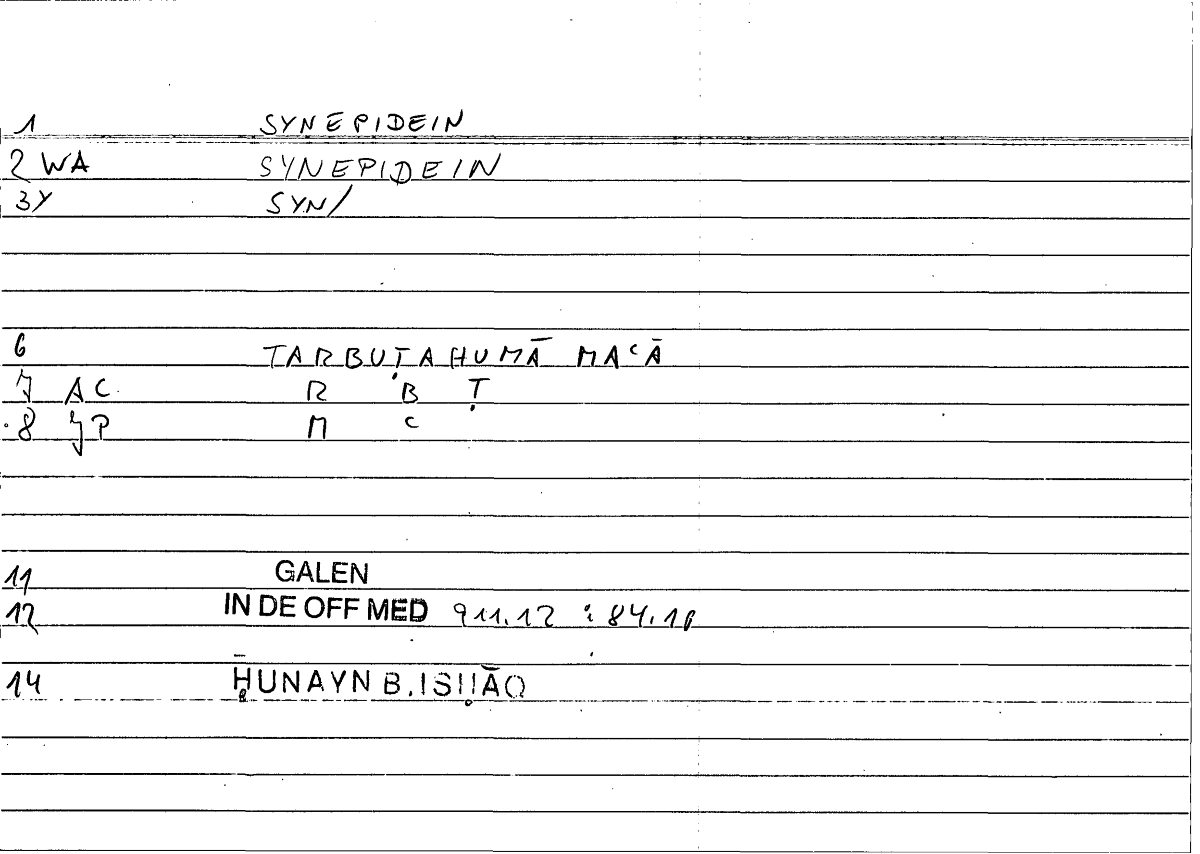 1 SYNEPIDEIN
2 WA SYNEPIDEIN
3Y SYN/
6 TARBUṬAHUMĀ MAᶜĀ
7 AC. R B Ṭ
8 JP M ᶜ
11 GALEN
12 IN DE OFF MED 911.12 : 84.10
14 ḤUNAYN B. ISḤĀQ